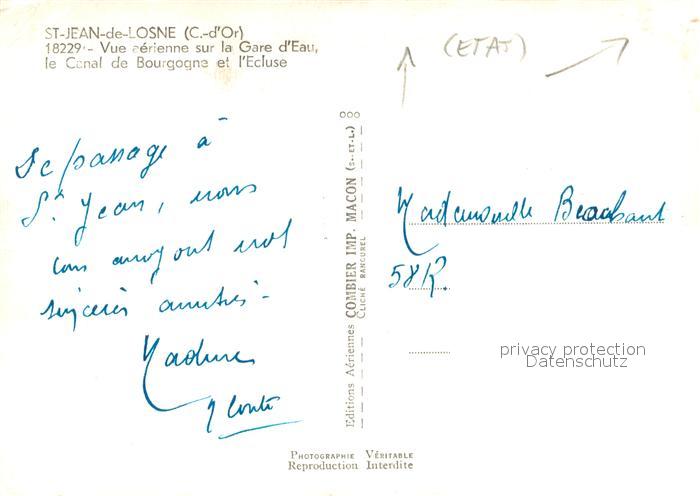 ST-JEAN-de-LOSNE (C.-d'Or)
18229 - Vue aérienne sur la Gare d'Eau,
le Canal de Bourgogne et l'Ecluse
(ETAT)
De passage à
St Jean, nous
vous envoyons nos
sincères amitiés -
Madame
Editions Aériennes COMBIER IMP. MACON (S.-ET-L.)
CLICHÉ RANCUREL
Mademoiselle
58 R.
privacy protection
Datenschutz
PHOTOGRAPHIE VÉRITABLE
Reproduction Interdite